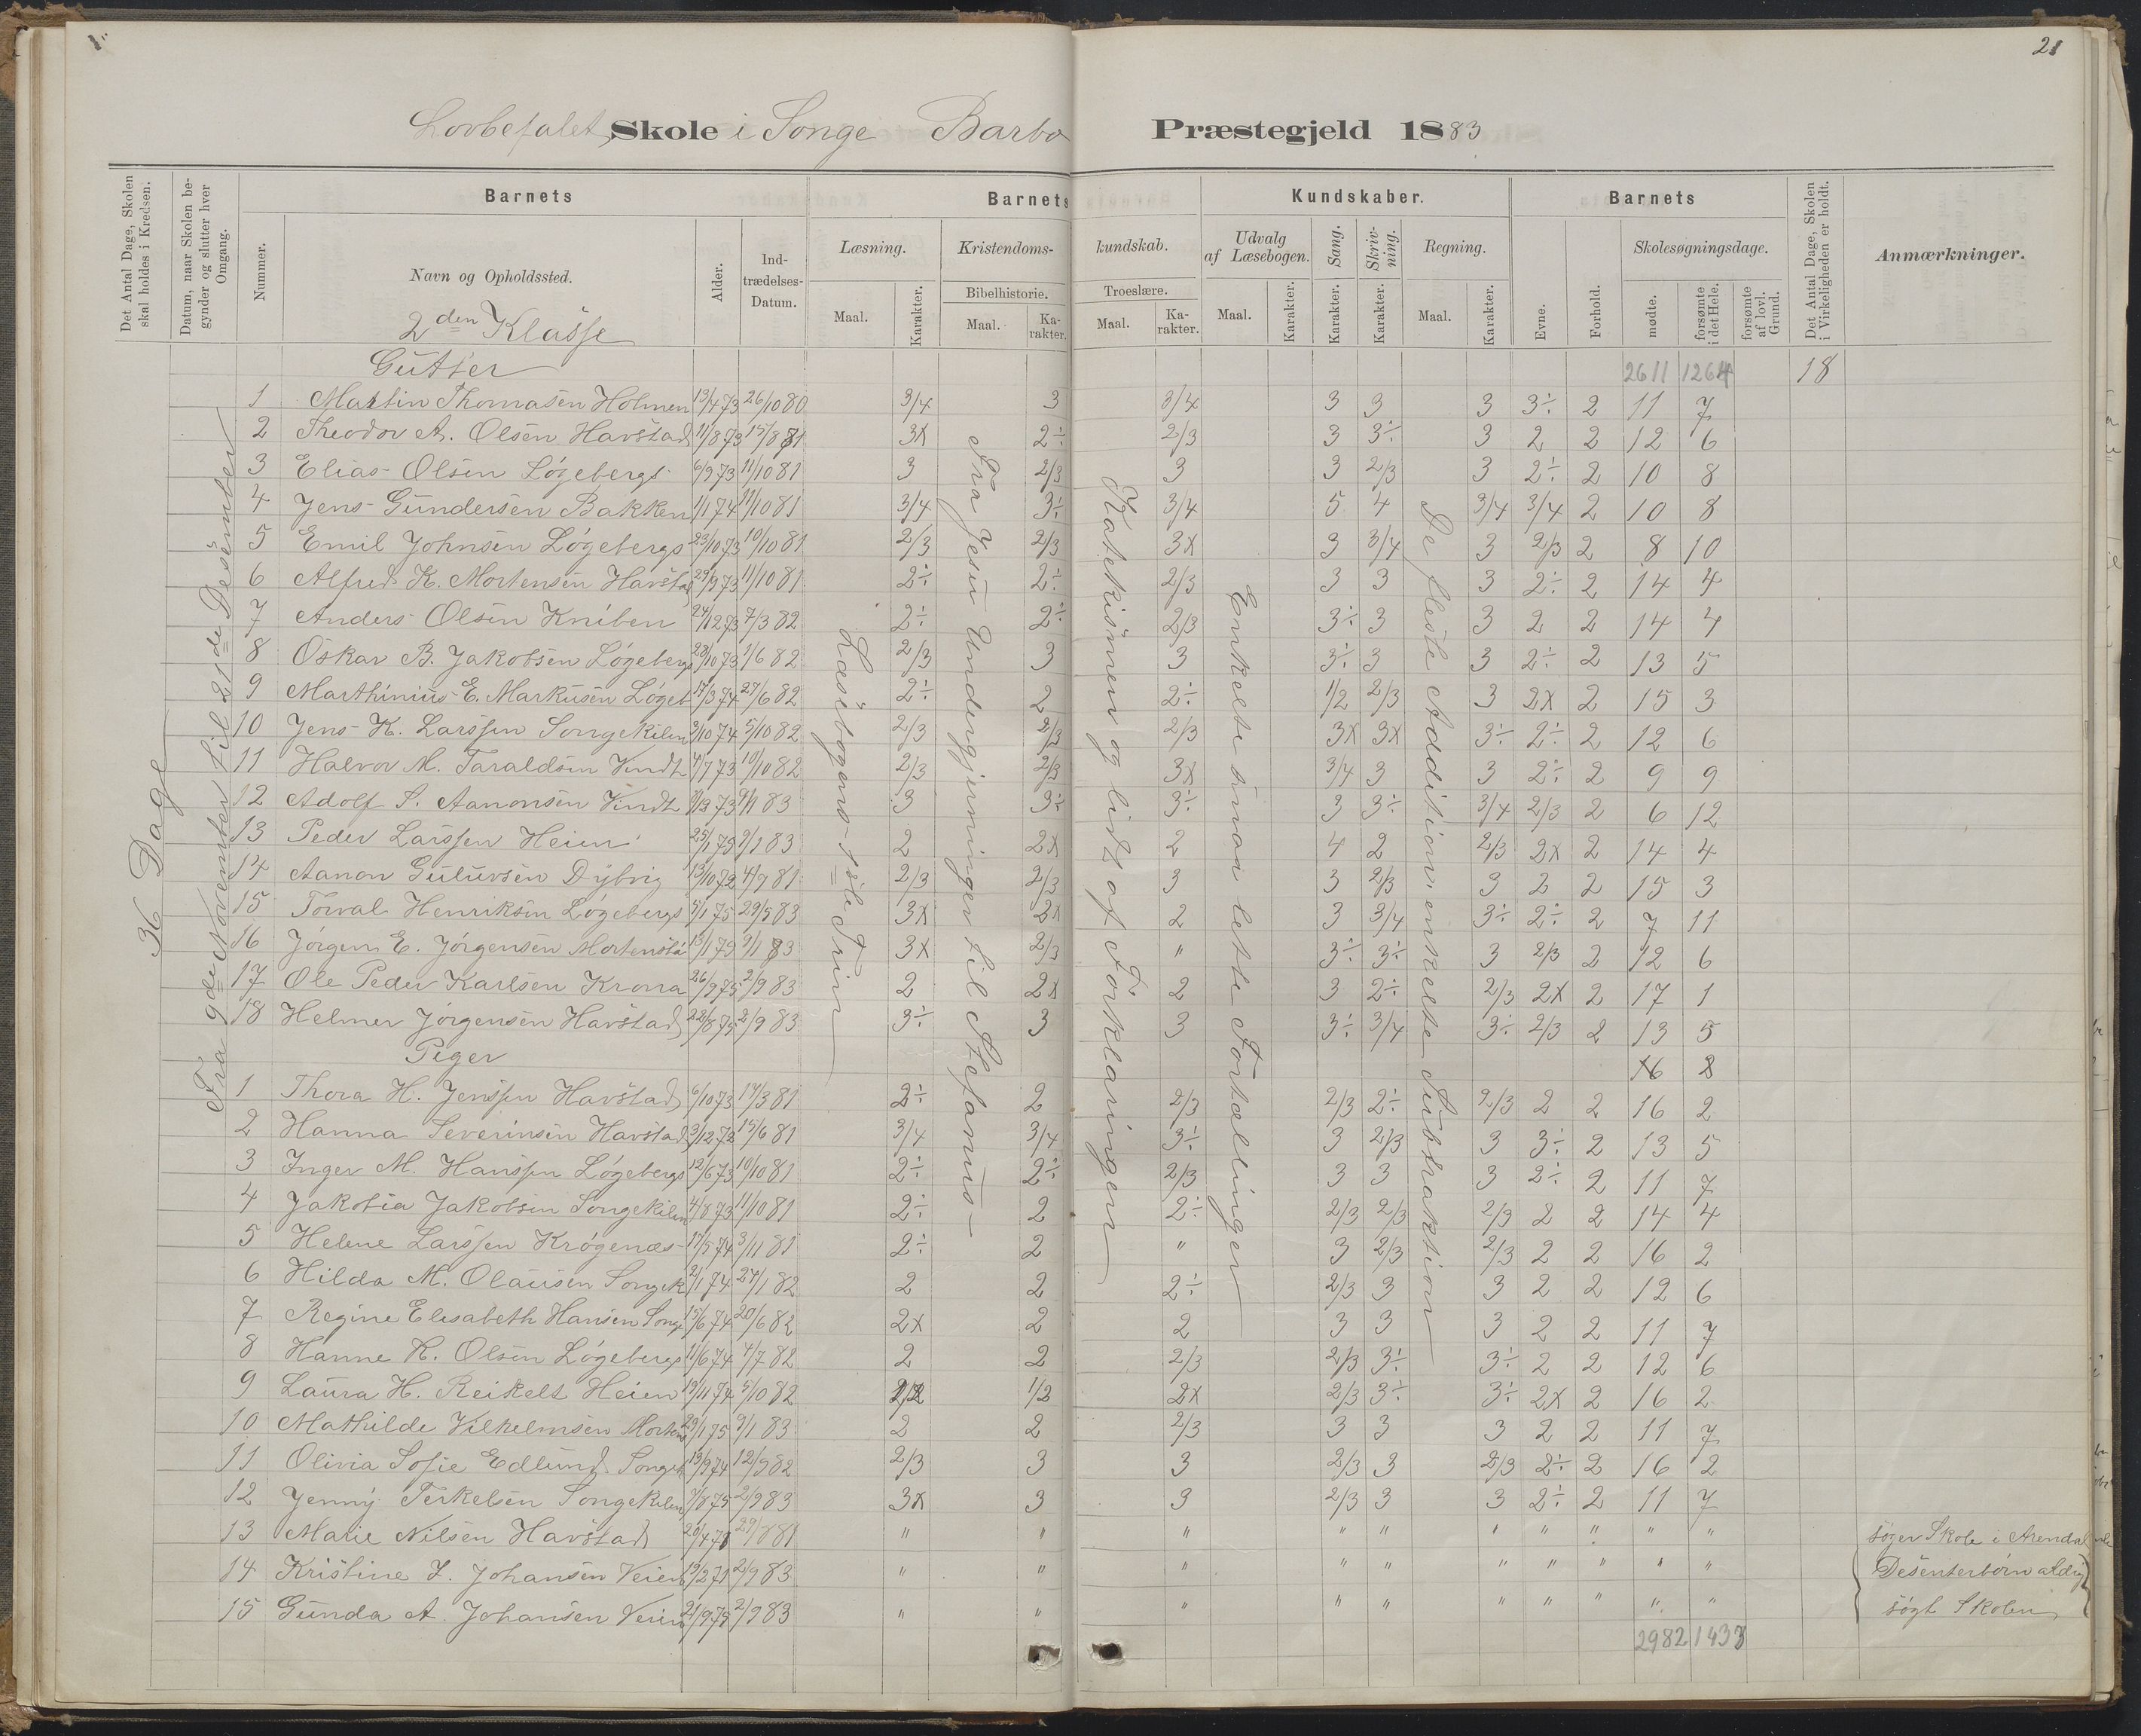 21
Lovbefalet Skole i Songe Barbo Præstegjeld 1883
Det Antal Dage, Skolen skal holdes i Kredsen.
Datum, naar Skolen begynder og slutter hver Omgang.
Barnets
Barnets Kundskaber.
Barnets
Det Antal Dage, Skolen i Virkeligheden er holdt.
Anmærkninger.
Nummer. Navn og Opholdssted. Alder. Indtrædelses-Datum.
Læsning. Kristendomskundskab. Udvalg af Læsebogen. Sang. Skrivning. Regning. Evne. Forhold. Skolesøgningsdage.
Bibelhistorie. Troeslære.
Maal. Karakter. Maal. Karakter. Maal. Karakter. Maal. Karakter. Karakter. Karakter. Maal. Karakter. mødte. forsømte i det Hele. forsømte af lovl. Grund.
36 Dage
Fra 9de November til 21de Desember
Læsebogens 1ste Trin
Fra Jesu Undergjerninger til Stefanus
Katekismen og lidt af Forklaringen
Enkelte smaa lette Fortællinger
De fleste Addition enkelte Subtraktion
2den Klasse
Gutter 2611 1264 18
1 Martin Thomasen Holmen 13/4 73 26/10 80 3/4 3 3/4 3 3 3 3÷ 2 11 7
2 Theodor A. Olsen Havstad 11/8 73 15/8 81 3x 2÷ 2/3 3 3÷ 3 2 2 12 6
3 Elias Olsen Løgebergs 6/9 73 11/10 81 3 2/3 3 3 2/3 3 2÷ 2 10 8
4 Jens Gundersen Bakken 1/1 74 11/10 81 3/4 3÷ 3/4 5 4 3/4 3/4 2 10 8
5 Emil Johnsen Løgebergs 23/10 73 10/10 81 2/3 2/3 3x 3 3/4 3 2/3 2 8 10
6 Alfred K. Mortensen Havstad 29/9 73 11/10 81 2÷ 2÷ 2/3 3 3 3 2÷ 2 14 4
7 Anders Olsen Kniben 24/12 73 7/3 82 2÷ 2÷ 2/3 3÷ 3 3 2 2 14 4
8 Oskar B. Jakobsen Løgebergs 28/10 73 1/6 82 2/3 3 3 3÷ 3 3 2÷ 2 13 5
9 Marthinius E. Markusen Løgeb 17/3 74 27/6 82 2÷ 2 2÷ 1/2 2/3 3 2x 2 15 3
10 Jens K. Larssen Songekilen 3/10 74 5/10 82 2/3 2/3 2/3 3x 3x 3÷ 2÷ 2 12 6
11 Halvor M. Taraldsen Vindt 4/7 73 10/10 82 2/3 2/3 3x 3/4 3 3 2÷ 2 9 9
12 Adolf S. Aanonsen Vindt 73 9/1 83 3 3÷ 3÷ 3 3÷ 3/4 2/3 2 6 12
13 Peder Larssen Heien 25/1 73 9/1 83 2 2x 2 4 2 2/3 2x 2 14 4
14 Aanon Guluvsen Dybvig 13/10 72 4/9 81 2/3 2/3 3 3 2/3 3 2 2 15 3
15 Torval Henriksen Løgebergs 5/1 75 29/5 83 3x 2x 2 3 3/4 3÷ 2÷ 2 7 11
16 Jørgen E. Jørgensen Mortenstø 13/1 73 9/1 83 3x 2/3 " 3÷ 3÷ 3 2/3 2 12 6
17 Ole Peder Karlsen Krona 26/9 75 2/9 83 2 2x 2 3 2÷ 2/3 2x 2 17 1
18 Helmer Jørgensen Havstad 22/8 75 2/9 83 3÷ 3 3 3÷ 3/4 3÷ 2/3 2 13 5
Piger
1 Thora H. Jenssen Havstad 6/10 73 14/3 81 2÷ 2 2/3 2/3 2÷ 2/3 2 2 16 2
2 Hanna Severinsen Havstad 3/12 72 15/6 81 3/4 3/4 3÷ 3 2/3 3 3÷ 2 13 5
3 Inger M. Hanssen Løgebergs 12/6 73 10/10 81 2÷ 2÷ 2/3 3 3 3 2÷ 2 11 7
4 Jakobia Jakobsen Songekilen 4/8 73 11/10 81 2÷ 2 2÷ 2/3 2/3 2/3 2 2 14 4
5 Helene Larssen Krøgenæs 17/5 74 3/11 81 2÷ 2 " 3 2/3 2/3 2 2 16 2
6 Hilda M. Olausen Songek 2/1 74 24/1 82 2 2 2÷ 2/3 3 3 2 2 12 6
7 Regine Elisabeth Hansen Songe 15/6 74 20/6 82 2x 2 2 3 3 3 2 2 11 7
8 Hanne K. Olsen Løgebergs 11/6 74 4/7 82 2 2 2/3 2/3 3÷ 3÷ 2 2 12 6
9 Laura H. Reikelt Heien 19/11 74 5/10 82 1/2 1/2 2x 2/3 3÷ 3÷ 2x 2 16 2
10 Mathilde Vilhelmsen Mortens 29/1 75 9/1 83 2 2 2/3 3 3 3 2 2 11 7
11 Olivia Sofie Edlund Songek 19/9 74 12/9 82 2/3 3 3 2/3 3 2/3 2÷ 2 16 2
12 Jenny Terkelsen Songekilen 7/8 75 2/9 83 3x 3 3 2/3 3 3 2÷ 2 11 7
13 Marie Nilsen Havstad 20/4 71 29/8 81 " " " " " " " " " " søger Skole i Arendal
14 Kristine J. Johansen Veien 19/2 71 2/9 83 " " " " " " " " " " Desenterbørn aldrig
15 Gunda A. Johansen Veien 21/9 75 2/9 83 " " " " " " " " " " søgt Skolen
2982 1433